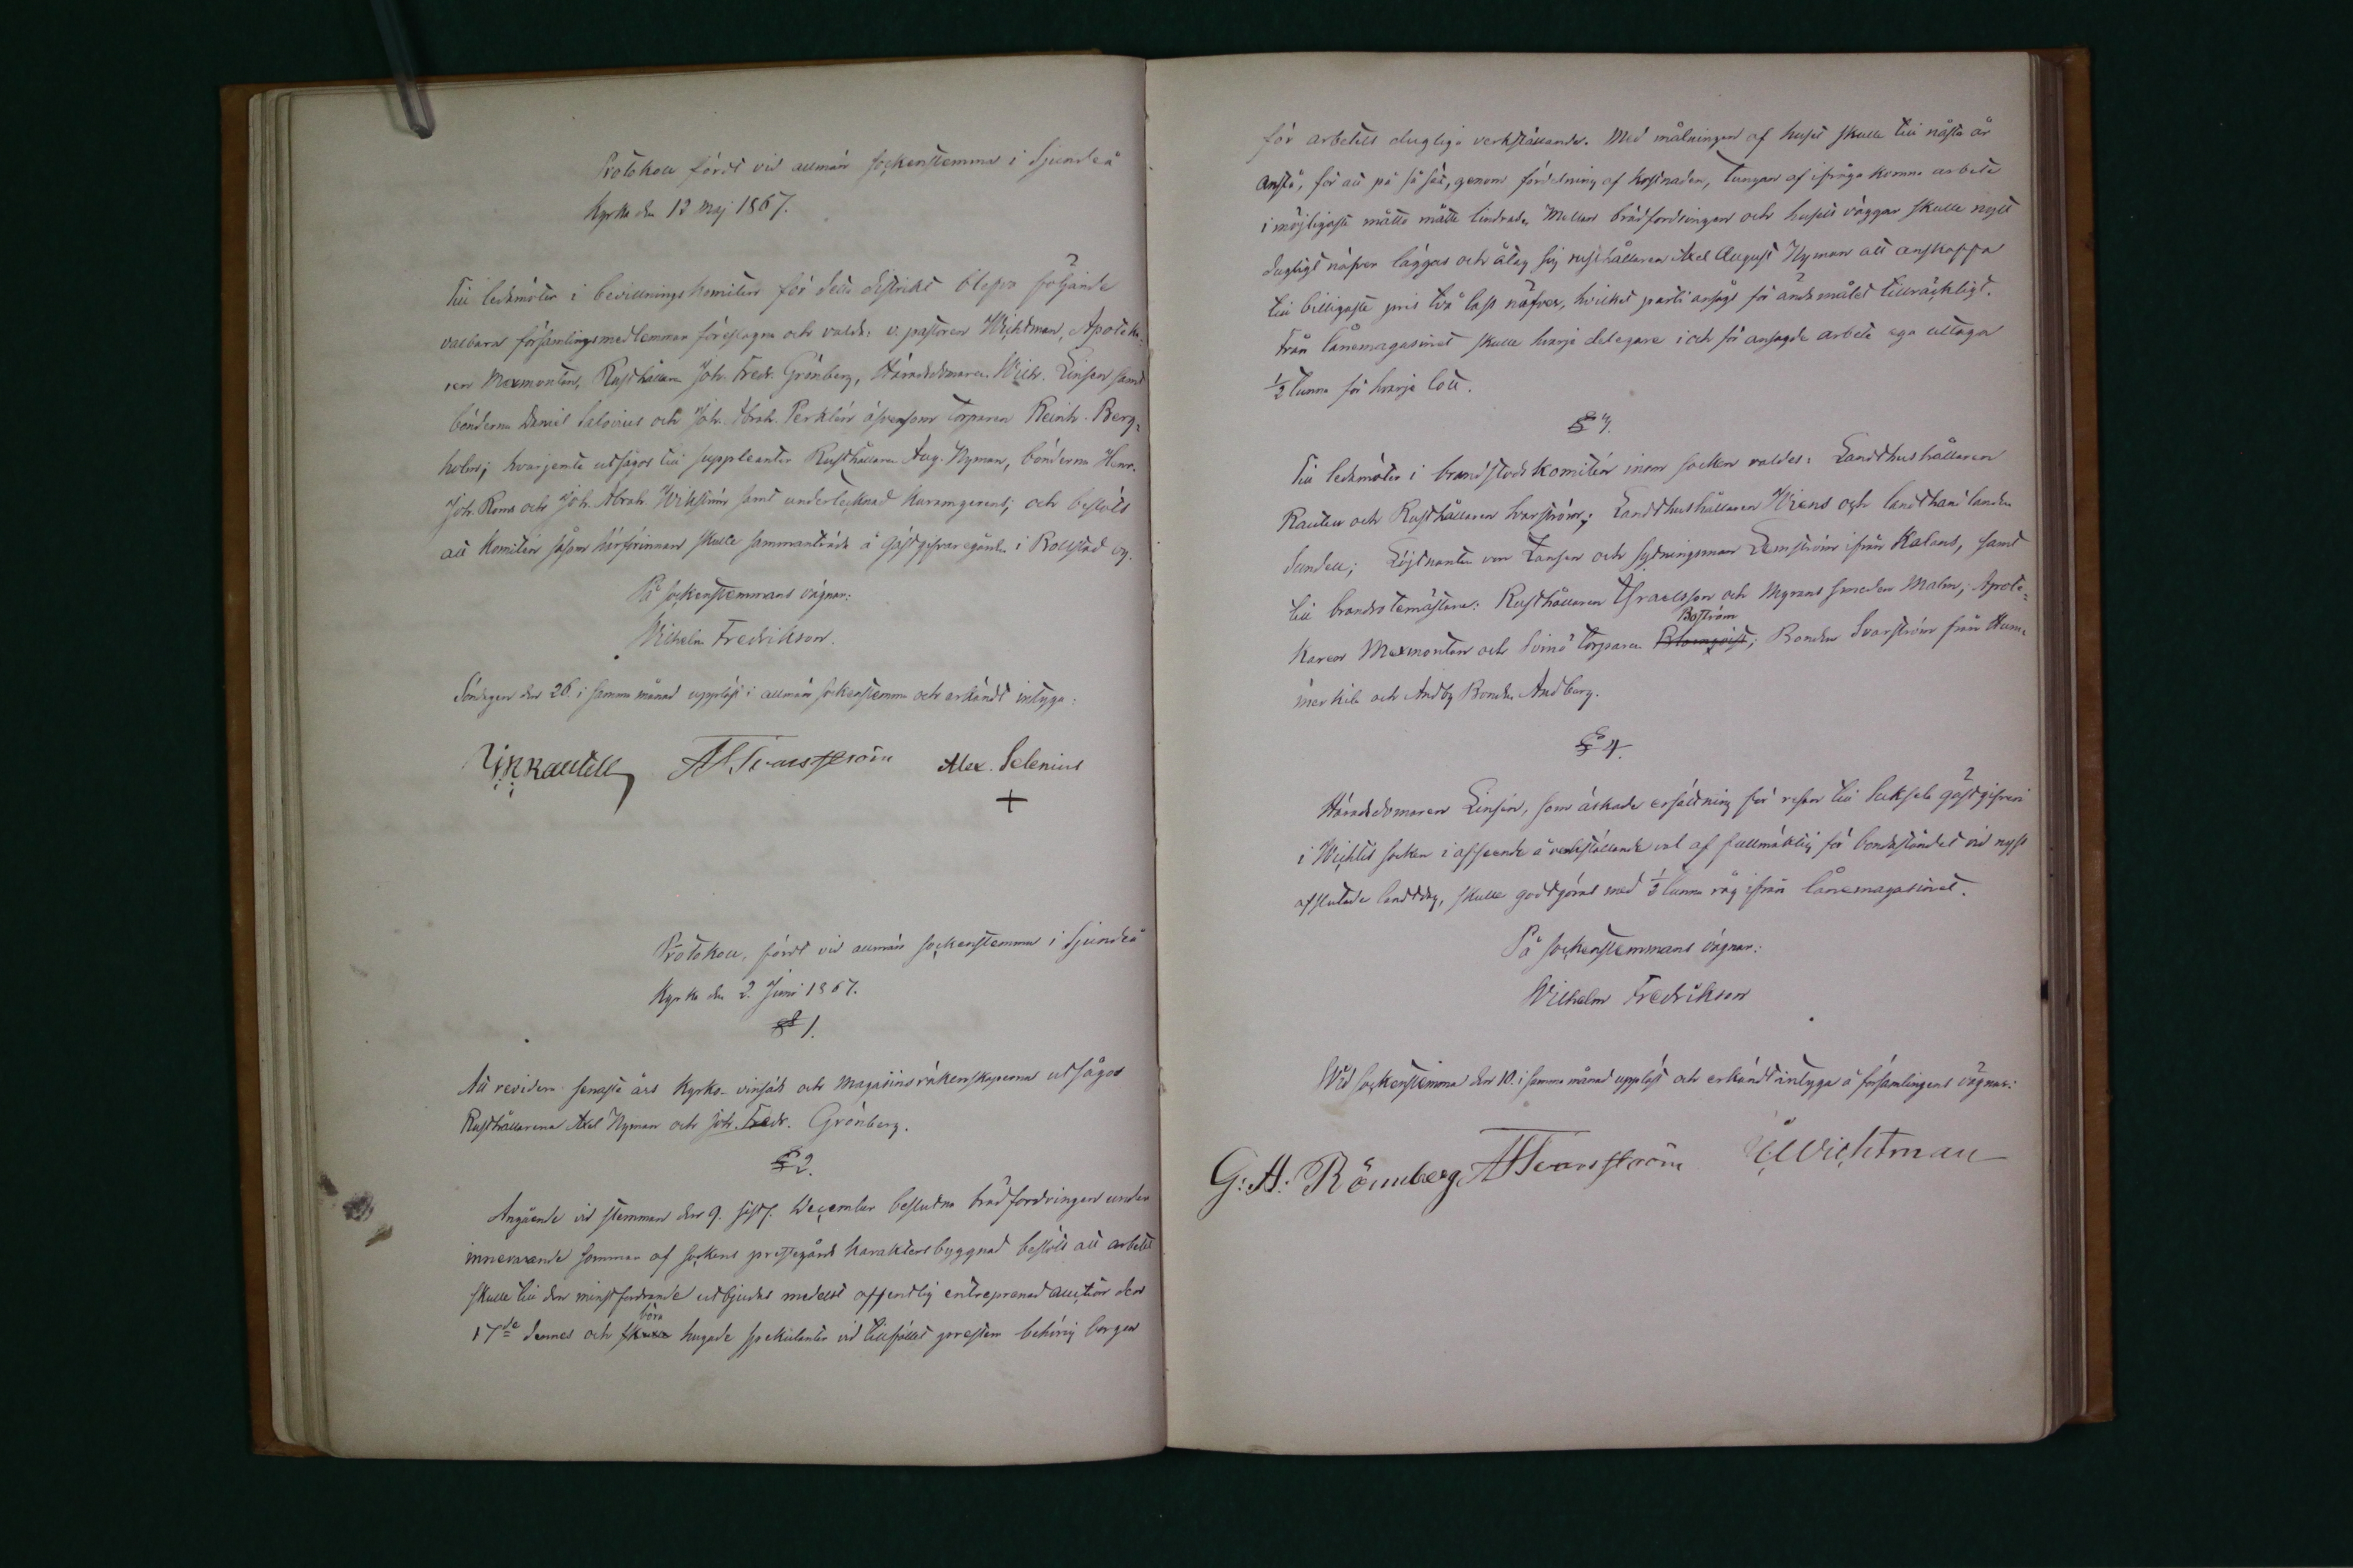 Protokoll fördt vid allmän sockenstemma i Sjundeå
Kyrka den 12 Maj 1867.
Till ledamöter i bevillningskomitén för detta distrikt blefvo följande
valbara församlingsmedlemmar föreslagna och valda: v. pastoren Wichtman, Apoteka-
ren Mexmontan, Rusthållaren Joh. Fredr. Grönberg, Häradsdomaren Wilh. Linsén samt
bönderna Daniel Salovius och Joh. Abrah. Perklén äfvensom torparen Reinh. Berg-
holm; hvarjemte utsågos till suppleanter Rusthållaren Aug. Nyman, bönderna Henr.
Joh. Roms och Joh. Abrah. Wikström samt undertecknad kuramgerens; och beslöts
att Komitén såsom härförinnan skulle sammanträda å Gästgifvaregården i Bollstad by.
På sockenstemmans vägnar:
Wilhelm Fredrikson.
Söndagen den 26. i samma månad uppläst i allmän sockenstemma och erkändt intyga:
Rautell A H Tvarsström Alex. Selenius
+
Protokoll, fördt vid allmän sockenstemma i Sjundeå
Kyrka den 2. Juni 1867.
§ 1.
Att revidera senaste års Kyrko- vinsäds och Magasinsräkenskaperna utsågos
Rusthållarena Axel Nyman och Joh. Fredr. Grönberg.
§ 2.
Angående vid stemman den 9. sistl. December beslutna brädfordringen under
innevarande sommar af sockens prestegårds karaktersbyggnad beslöts att arbetet
skulle till den minstfordrande utbjudas medelst offentlig entreprenad auktion den
17de dennes och skulle böra hugade spekulanter vid tillfället prestera behörig borgen
för arbetets dugliga verkställande. Med målningen af huset skulle till nästa år
anstå, för att på så sätt, genom fördelning af kostnaden, tungan af ifråga komna arbete
i möjligaste måtto måtte lindras. Mellan brädfordringen och husets väggar skulle nytt
dugligt näfver läggas och åtog sig rusthållaren Axel August Nyman att anskaffa
till billigaste pris två lass näfver, hvilket parti ansågs för ändamålet tillräckligt.
Från lånemagasinet skulle hvarje delegare i och för ansagde arbete ega uttaga
1/2 tunna för hvarje lott.
§ 3.
Till ledamöter i brandstodskomitén inom socken valdes: Landthushållaren
Rautell och Rusthållaren Ivarström; Landthushållaren Wiens och landthandlanden
Sundell; Löjtnanten von Tansen och sytningsman Lemström ifrån Kalans, samt
till brandrotemästare: Rusthållaren Israelsson och Myrans smeden Malm; Apote-
karen Mexmontan och Svinö torparen Blomqvist Boström; Bonden Ivarström från Hum-
merkila och Andby Bonden Andberg.
§ 4.
Häradsdomaren Linsén, som äskade ersättning för resan till Suksela gästgifveri
i Wichtis socken i afseende å verkställande val af fullmäktig för bondeståndet vid nyss
afslutade landtdag, skulle godtgöras med 1/2 tunna råg ifrån lånemagasinet.
På sockenstemmans vägnar:
Wilhelm Fredrikson
Wid sockenstemma den 10. i samma månad uppläst och erkändt intyga å församlingens vägnar:
G: A: Rönnberg A H Tvarsström Wichtman